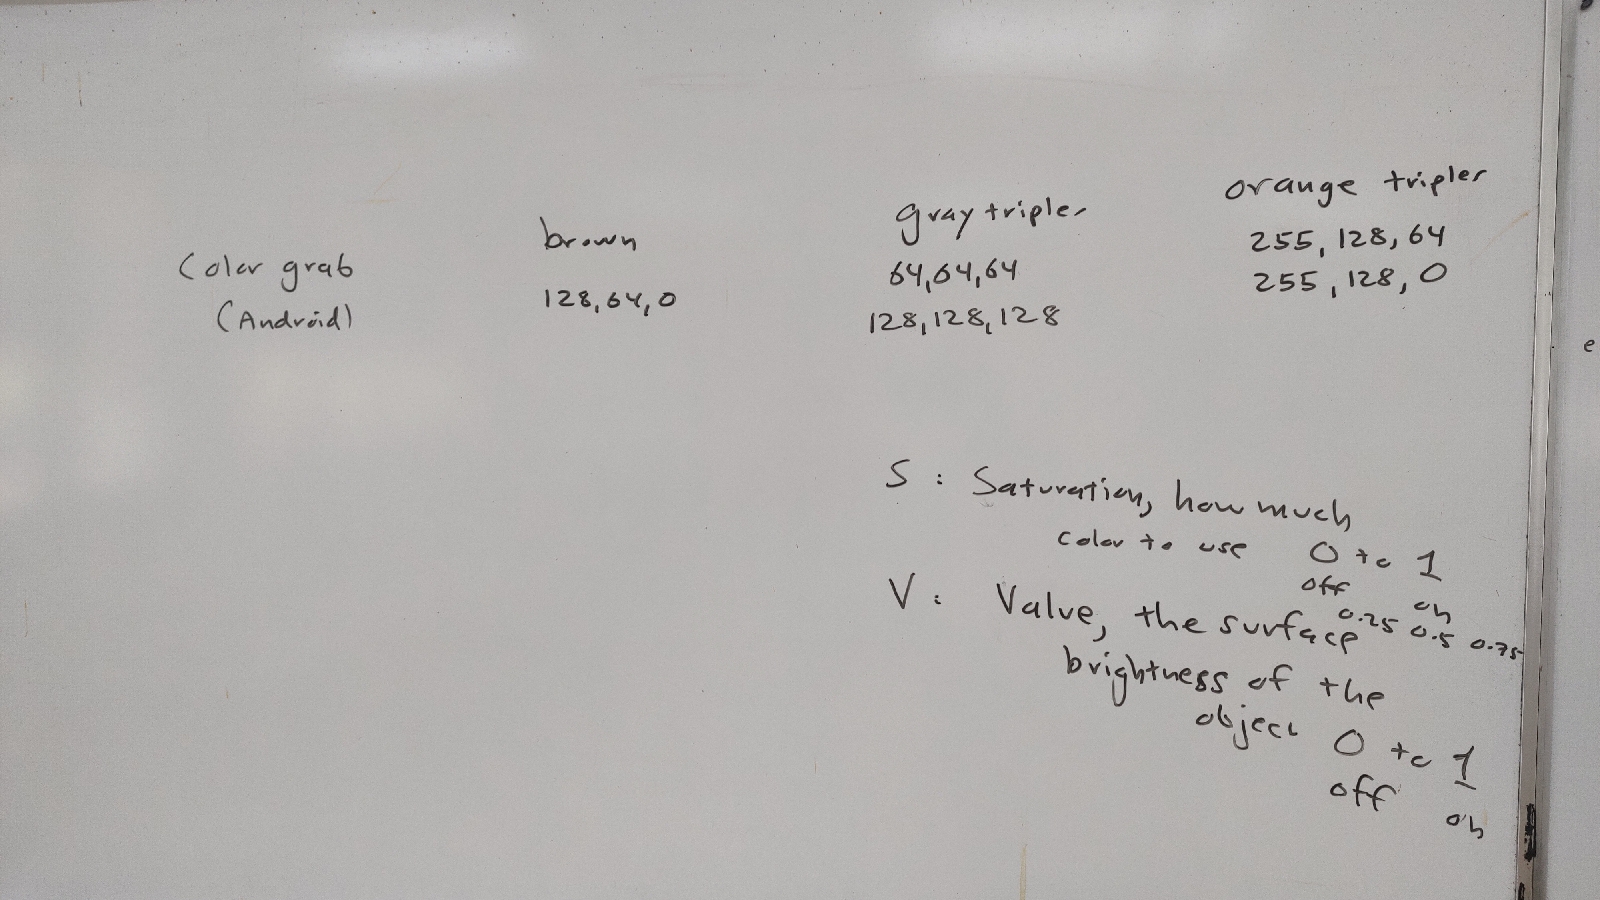 Color grab
(Android)
brown
128,64,0
gray triples
64,64,64
128,128,128
orange triples
255, 128, 64
255, 128, 0
S : Saturation, how much
color to use 0 to 1
off on
0.25 0.5 0.75
V : Value, the surface
brightness of the
object 0 to 1
off on
e